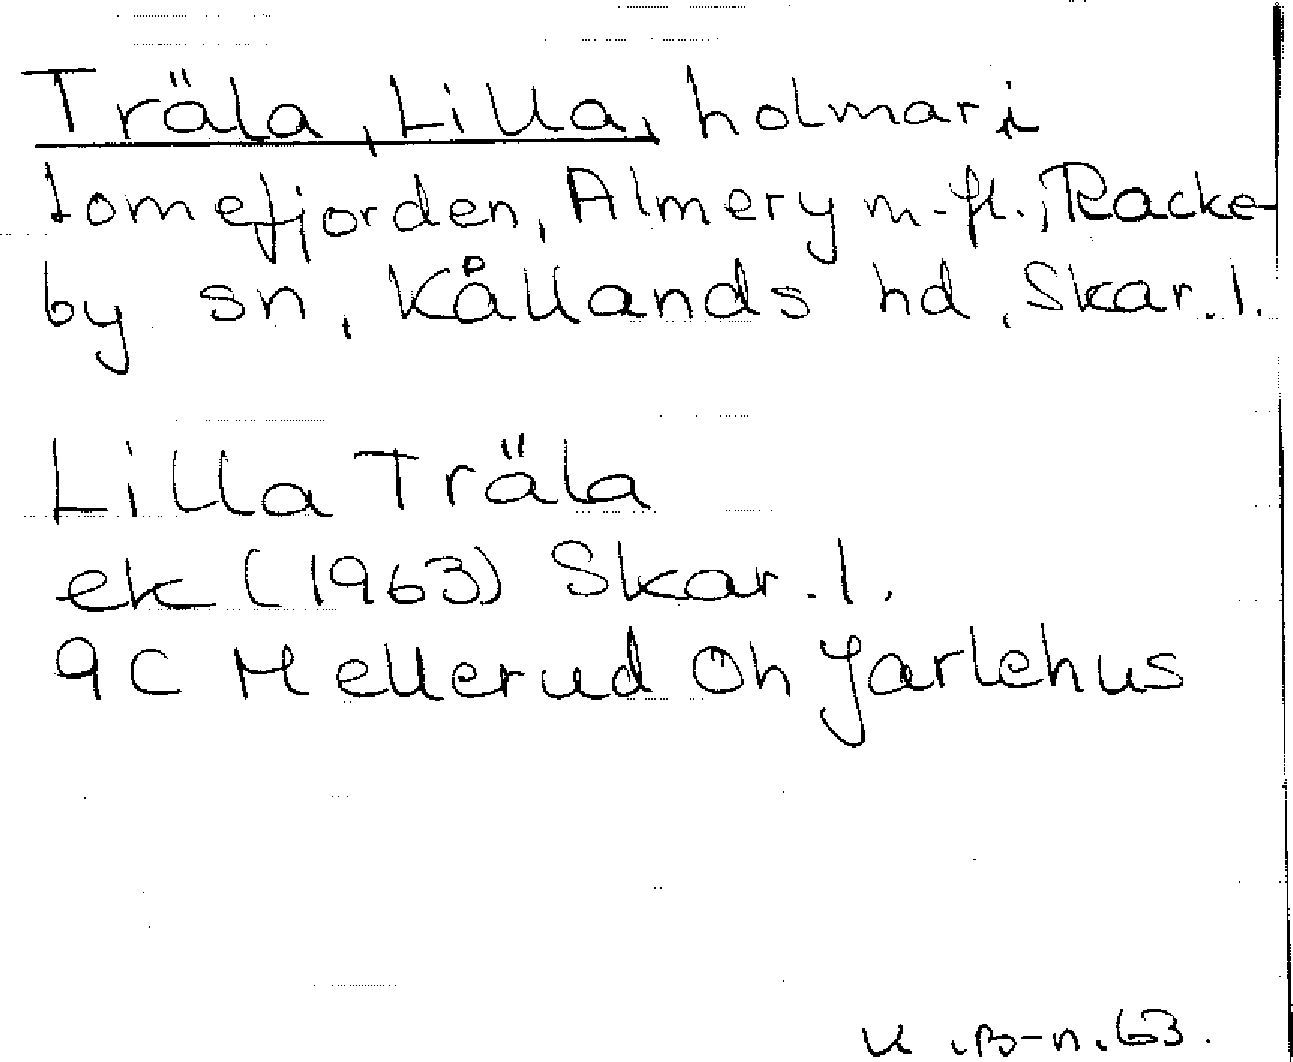 Träla, Lilla, holmar i
Lomefjorden, Almery m.fl., Racke-
by sn, Kållands hd, Skar. l.
Lilla Träla
ek (1963) Skar. l.
9C Mellerud Öh Jarlehus
63.